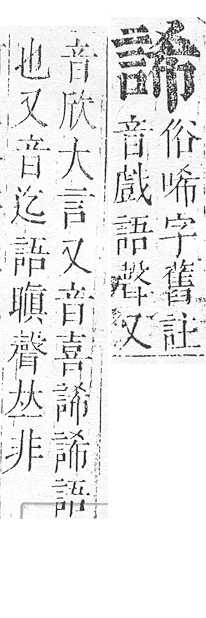 䛥
俗唏字舊註
音戲語聲又
音欣大言又音喜䛥䛥語
也又音迄語瞋聲𠀤非